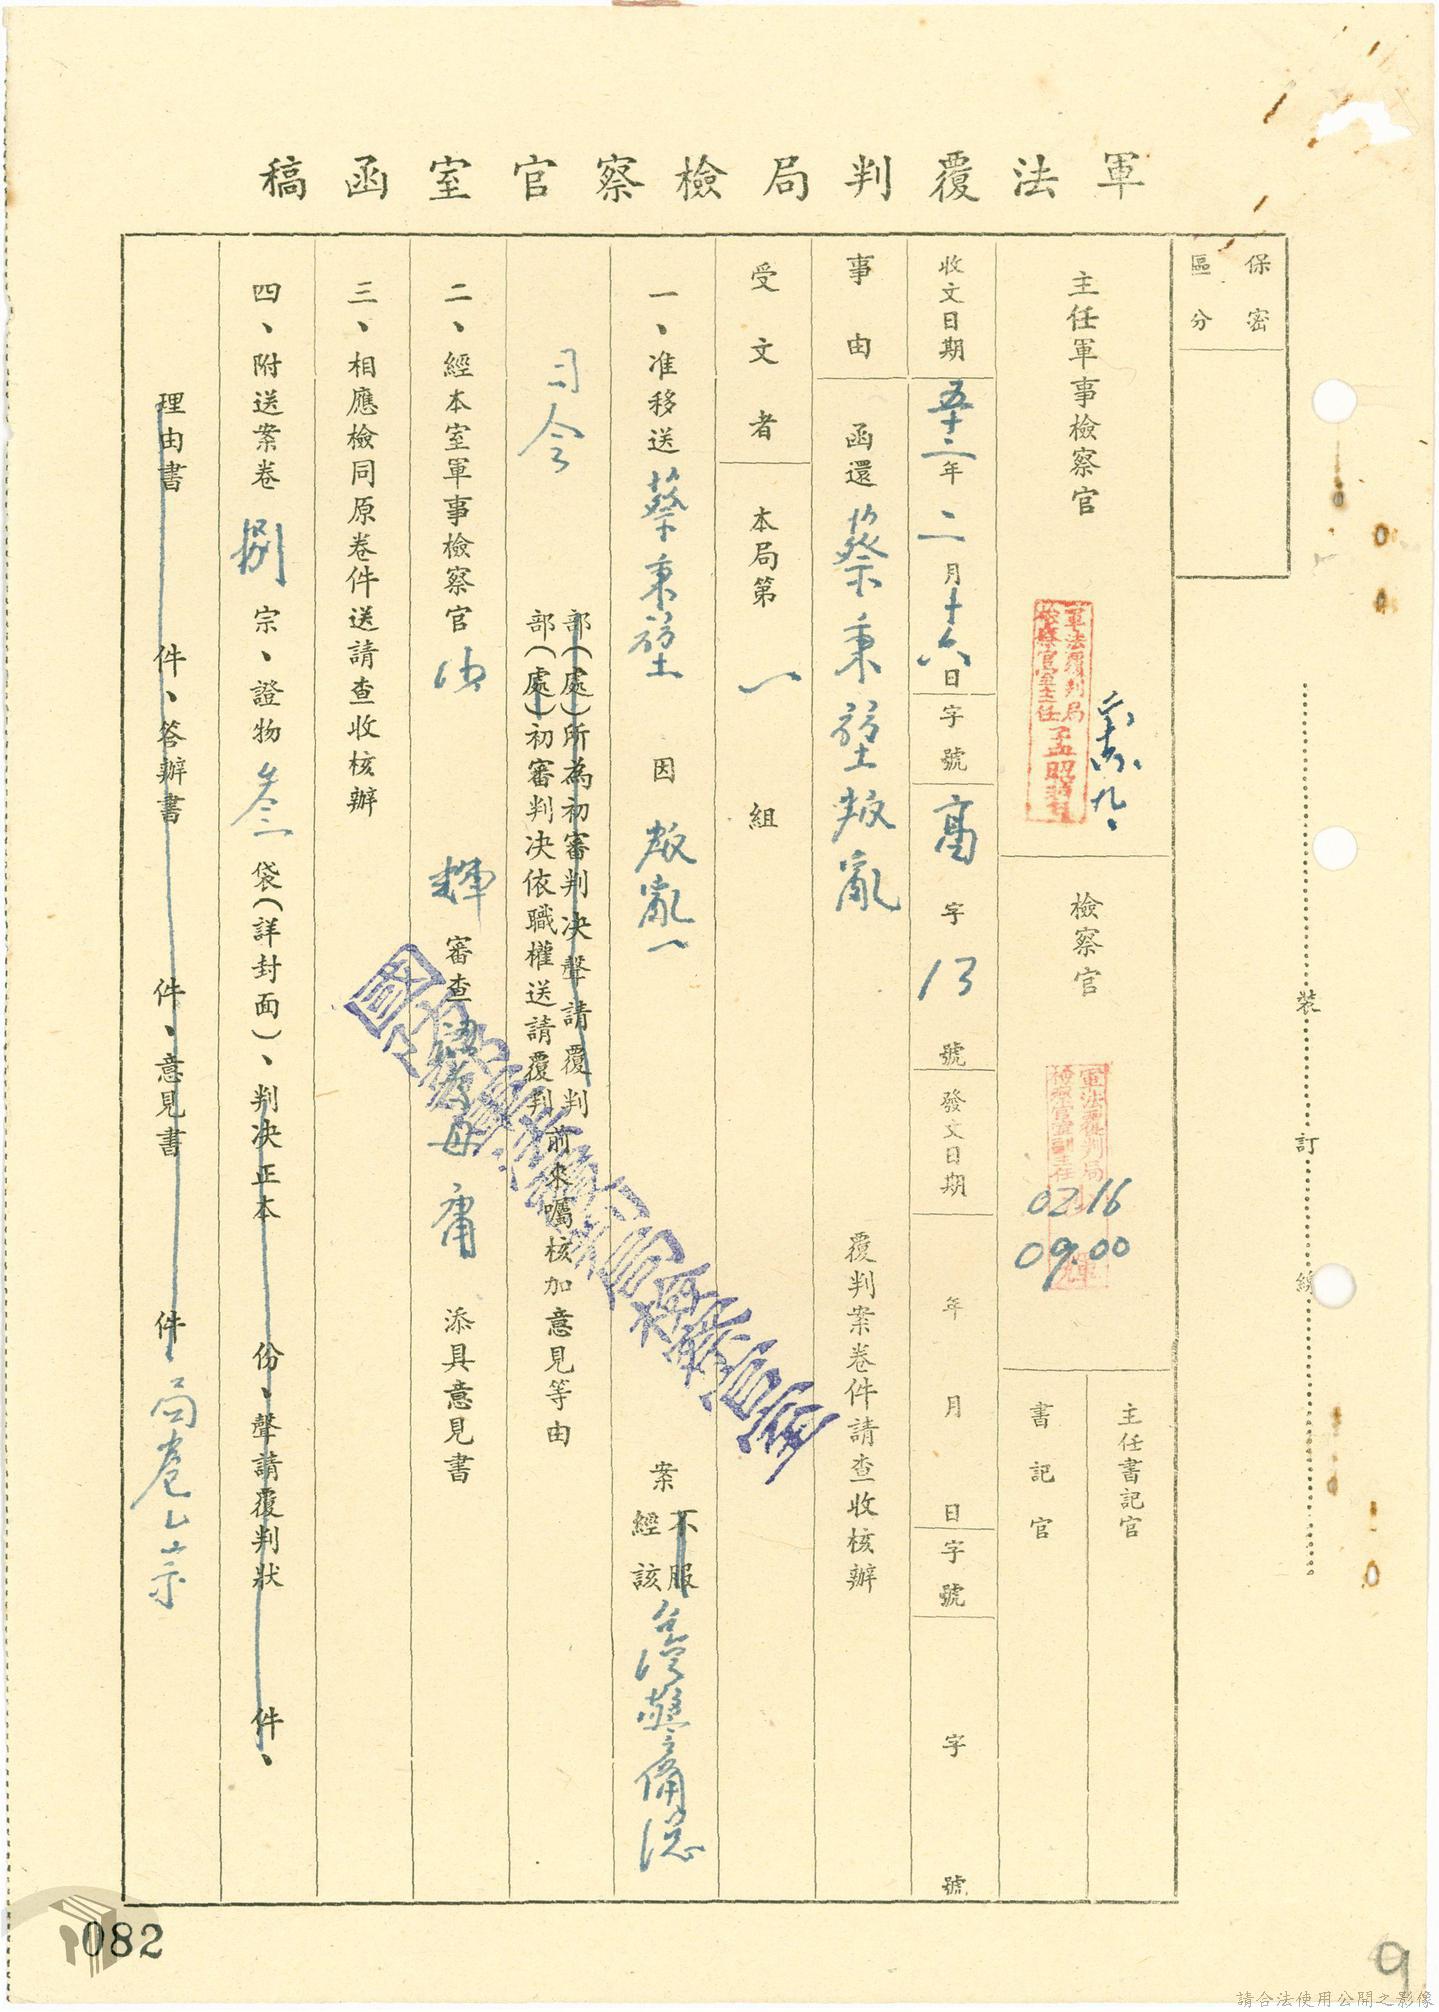 軍法覆判局檢察官室函稿
保密區分
主任軍事檢察官
軍法覆判局
檢察官室主任
檢察官
軍法覆判局
檢察官室副主任
02 16
09.00
主任書記官
書記官
收文日期 五十二年二月十六日 字號 高字13號 發文日期 年 月 日 字號 字 號
事由 函還蔡秉堃叛亂 覆判案卷件請查收核辦
受文者 本局第一組
一、准移送蔡秉堃因叛亂一案 不服 經該台灣警備總
司令 部(處)所為初審判決聲請覆判
部(處)初審判決依職權送請覆判 前來囑核加意見等由
二、經本室軍事檢察官 輝 審查 毋庸添具意見書
三、相應檢同原卷件送請查收核辦
四、附送案卷捌宗、證物叁袋(詳封面)、判決正本 份、聲請覆判狀 件、
理由書 件、答辯書 件、意見書 件、局卷乙宗
國防部軍法覆判局檢察官室
裝訂線
082
9
請合法使用公開之影像